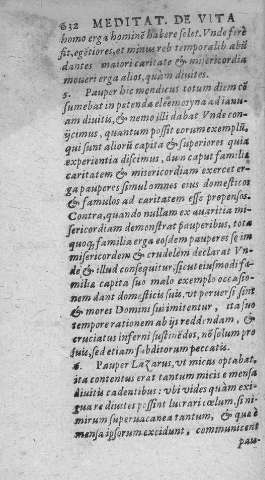 632 MEDITAT. DE VITA
homo erga hominē habere solet. Vnde ferè
fit, egētiores, et minus reb⁹ temporalib⁹ abūdantes
maiori caritate & misericordia
moueri erga alios, quàm diuites.
5. Pauper hic mendicus totum diem cōsumebat
in petenda eleemosyna ad ianuam
diuitis, & nemo illi dabat Vnde conijcimus,
quantum possit eorum exemplū,
qui sunt aliorū capita & superiores quia
experientia discimus, dun caput familiæ
caritatem & misericordiam exercet erga
pauperes simul omnes eius domesticos
& famulos ad caritatem esse propensos.
Contra, quando nullam ex auaritia misericordiam
demonstrat pauperibus, tota
quoq; familia erga eosdem pauperes se immisericordem
& crudelem declarat Vnde
& illud consequitur, sicut eiusmodi familiæ
capita suo malo exemplo occasionem
dant domesticis suis, vt peruersi sint
& mores Domini sui imitentur, ita suo
tempore rationem ab ijs reddendam, &
cruciatus inferni sustinēdos, nō solum pro
suis, sed etiam subditorum peccatis.
6. Pauper Lazarus, vt micus optabat,
ita contentus erat tantum micis e mensa
diuitis cadentibus: vbi vides quàm exiguare
diuites possint lucrari cœlum, si nimirum
superuacanea tantum, & quæ è
mensa ipsorum excidunt, communicent
pau-